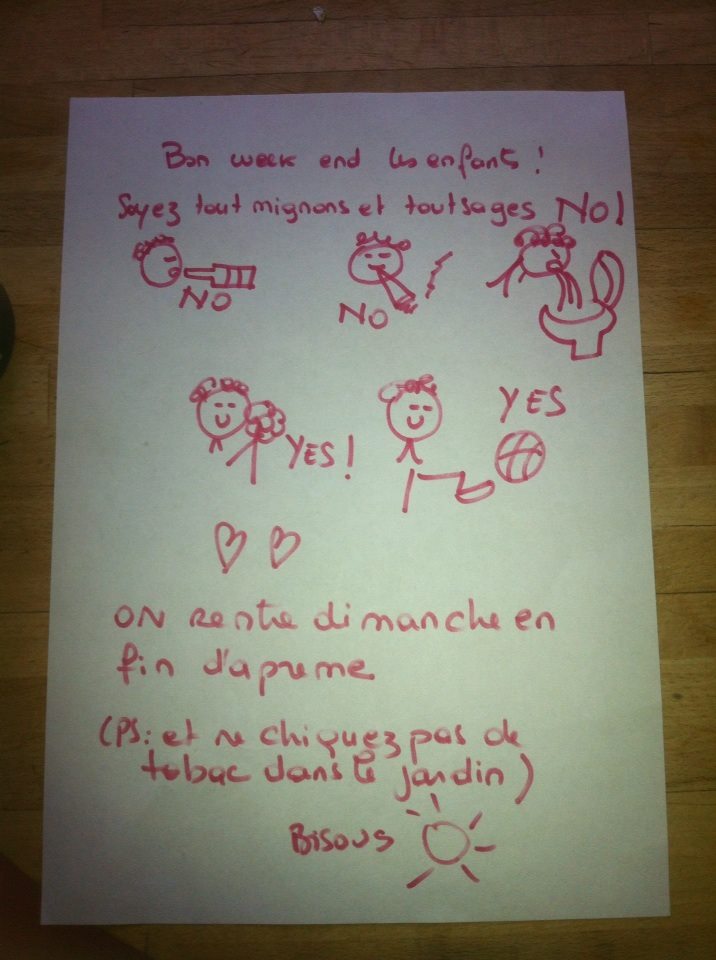 Bon week end les enfants !
Soyez tout mignons et tout sages NO!
NO
NO
YES
YES!
ON rentre dimanche en
fin d'aprème
(PS: et ne chiquez pas de
tabac dans le jardin)
Bisous